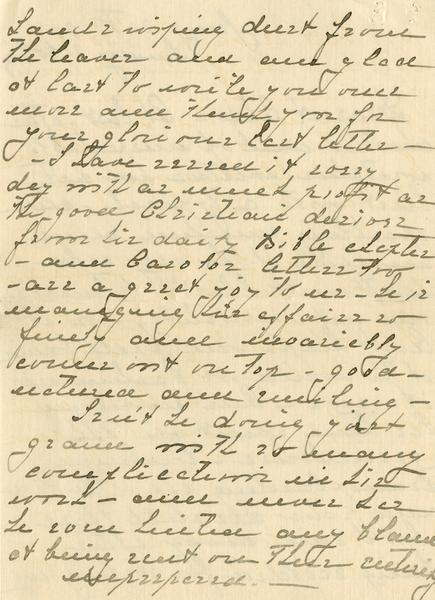 Sand & wiping dust from
the leaves and am glad
at last to write you once
more and thank you for
your glorious last letter —
— I have reread it every
day with as much profit as
the good Christian derives
from his daily Bible chapter
— and Carotos letters too
— are a great joy to us — he is
managing his affairs so
finely and invariably
comes out on top — good-
natured and smiling —
Isn't he doing just
grand with so many
complications in his
work — and never has
he even hinted any blame
at being sent on this
unprepared. —